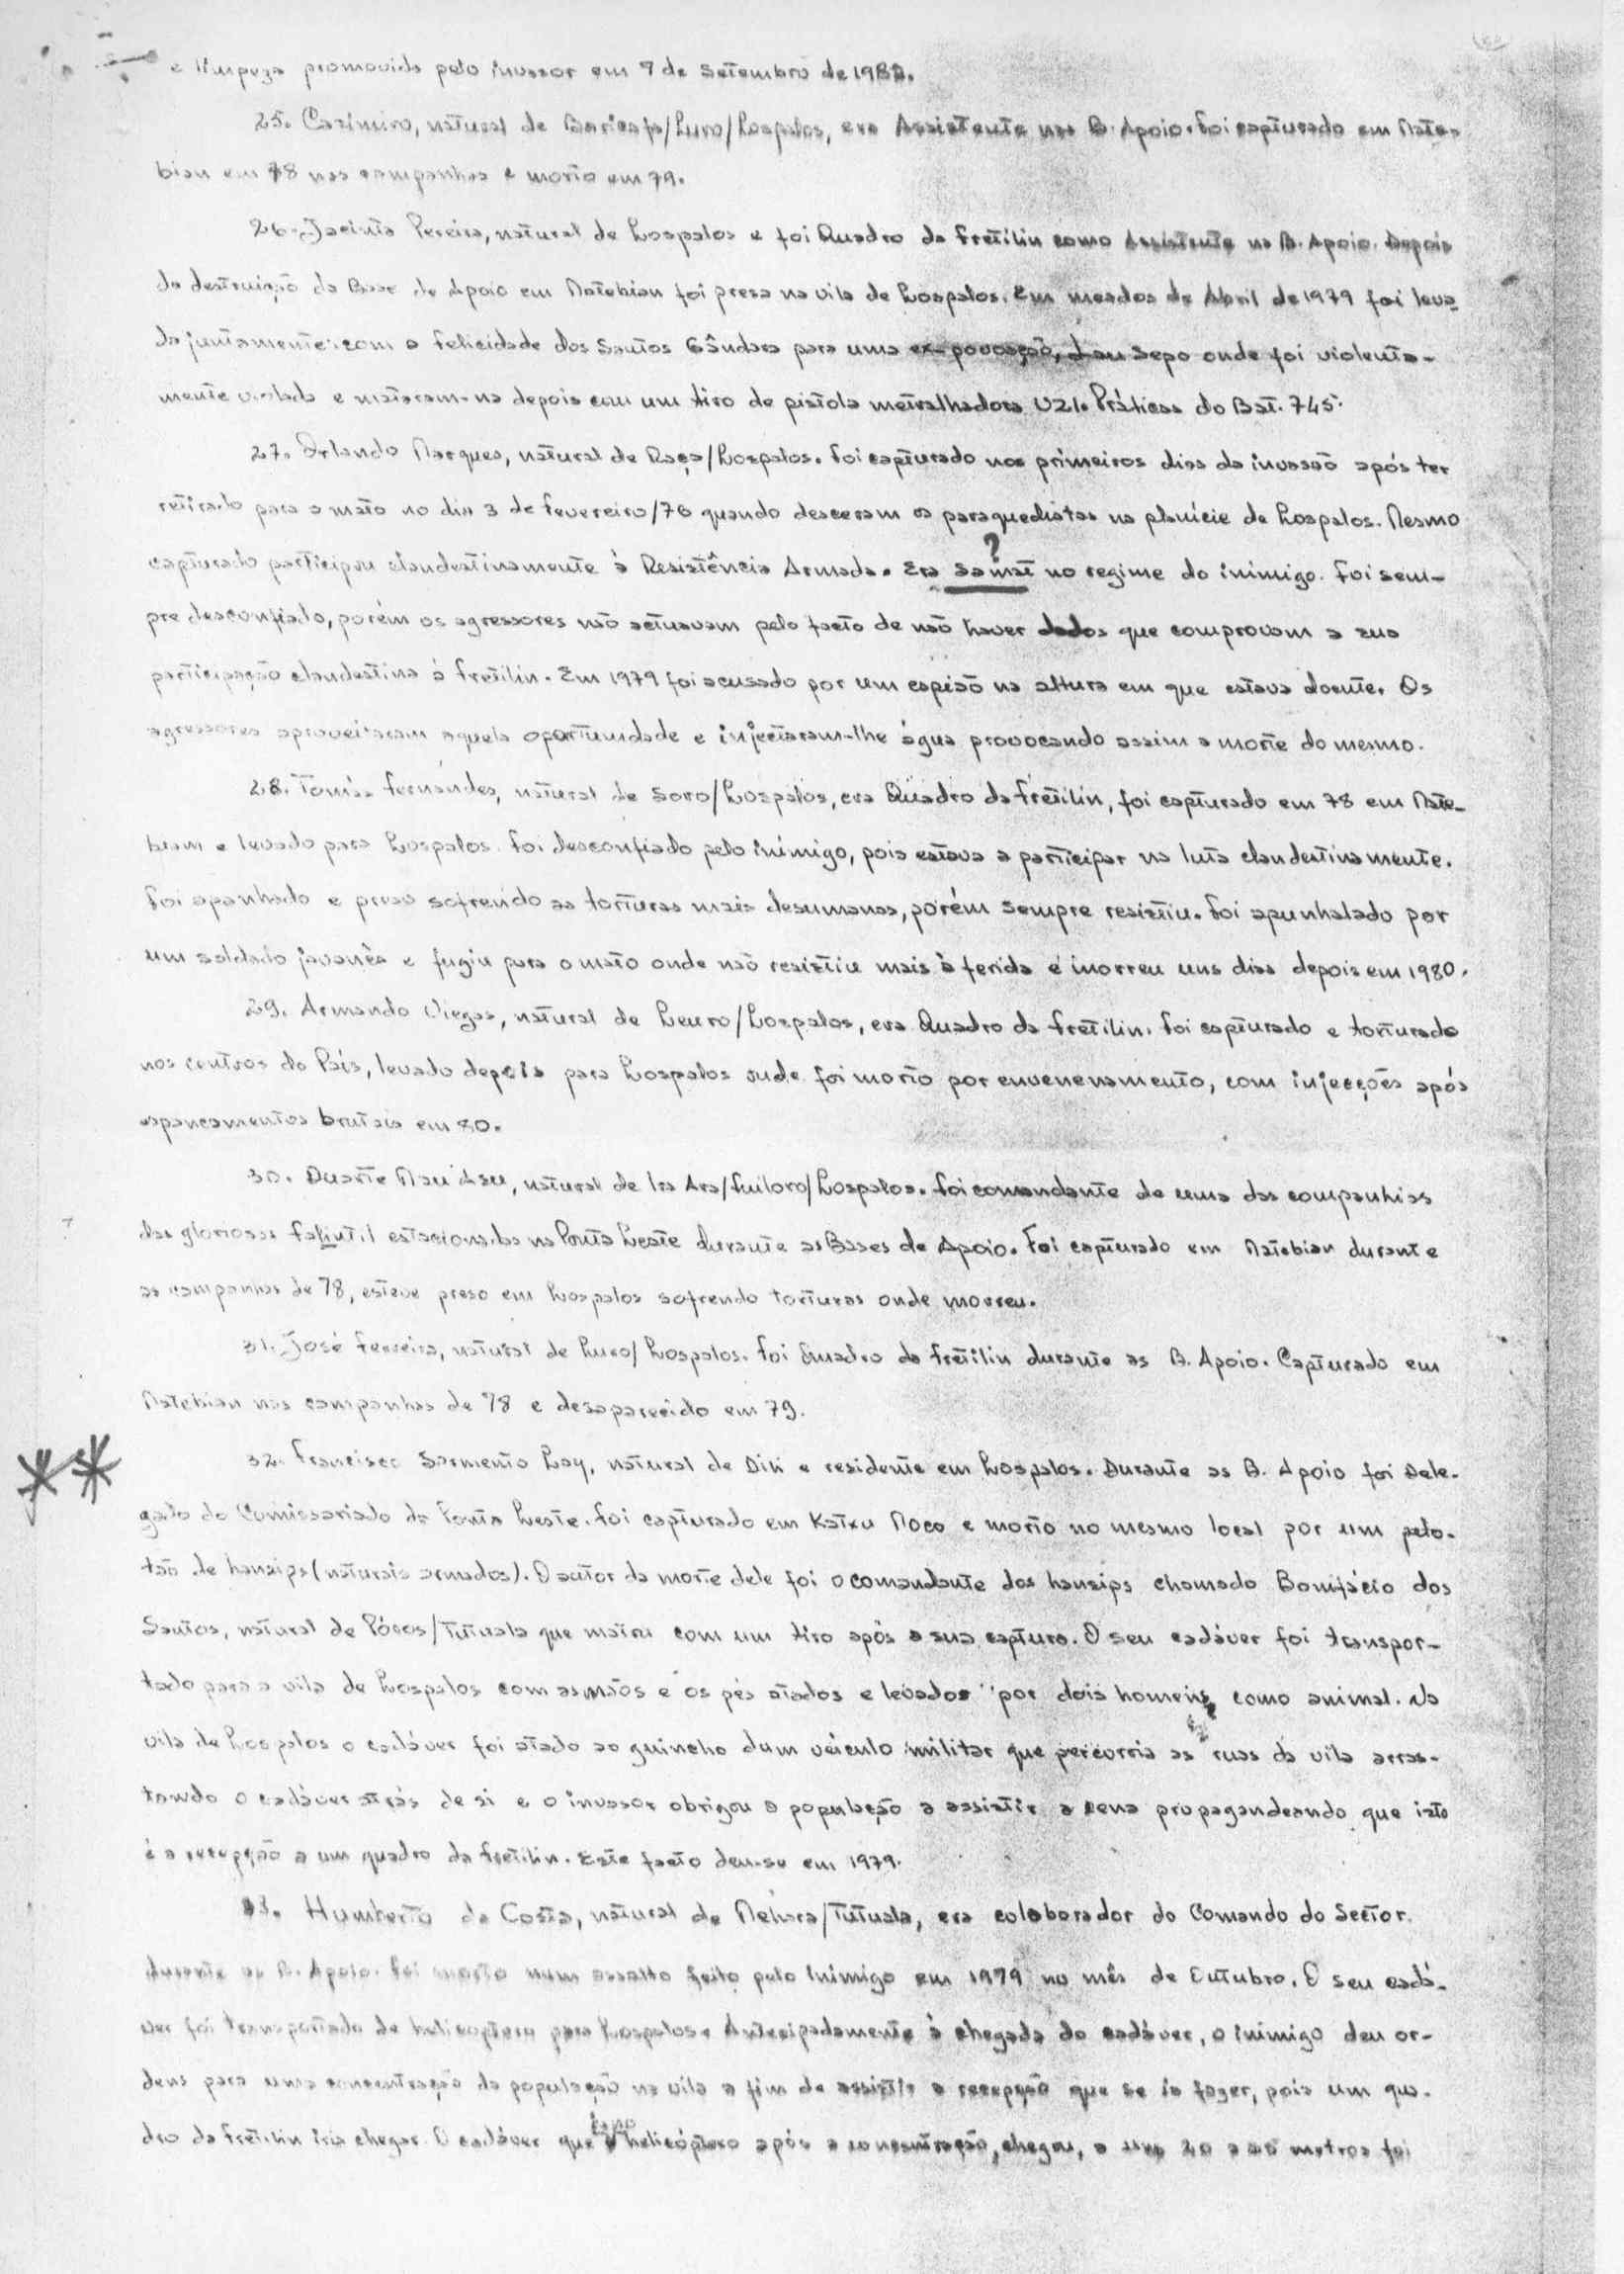 e limpeza promovida pelo invasor em 7 de Setembro de 1982.
25. Casimiro, natural de /Luro/Lospalos, era Assistente nas B. Apoio. Foi capturado em Mate-
bian em 78 nas campanhas e morto em 79.
26. Jacinta Pereira, natural de Lospalos e foi Quadro da Fretilin como Assistente na B. Apoio. Depois
da destruição da Base de Apoio em Matebian foi presa na vila de Lospalos. Em meados de Abril de 1979 foi leva-
da juntamente com a Felicidade dos Santos Gândara para uma ex-povoação, Lau Sepo onde foi violenta-
mente violada e mataram-na depois com um tiro de pistola metralhadora UZI. Práticas do Bat. 745.
27. Orlando Marques, natural de Raça/Lospalos. Foi capturado nos primeiros dias da invasão após ter
retirado para o mato no dia 3 de Fevereiro/76 quando desceram os paraquedistas na planície de Lospalos. Mesmo
?
capturado participou clandestinamente à Resistência Armada. Era no regime do inimigo. Foi sem-
pre desconfiado, porém os agressores não actuavam pelo facto de não haver dados que comprovam a sua
participação clandestina à Fretilin. Em 1979 foi acusado por um espião na altura em que estava doente. Os
agressores aproveitaram aquela oportunidade e injectaram-lhe água provocando assim a morte do mesmo.
28. Tomás Fernandes, natural de Soro/Lospalos, era Quadro da Fretilin, foi capturado em 78 em Mate-
biam e levado para Lospalos. Foi desconfiado pelo inimigo, pois estava a participar na luta clandestinamente.
Foi apanhado e preso sofrendo as torturas mais desumanas, porém sempre resistiu. Foi apunhalado por
um soldado javanês e fugiu para o mato onde não resistiu mais à ferida e morreu uns dias depois em 1980.
29. Armando Viegas, natural de Leuro/Lospalos, era Quadro da Fretilin. Foi capturado e torturado
nos centros do País, levado depois para Lospalos onde foi morto por envenenamento, com injecções após
espancamentos brutais em 80.
30. Duarte Mau Asu, natural de Ira Ara/Fuiloro/Lospalos. Foi comandante de uma das companhias
das gloriosas Falintil estacionadas na Ponta Leste durante as Bases de Apoio. Foi capturado em Matebian durante
as campanhas de 78, esteve preso em Lospalos sofrendo torturas onde morreu.
31. José Ferreira, natural de Luro/Lospalos. Foi Quadro da Fretilin durante as B. Apoio. Capturado em
Matebian nas campanhas de 78 e desaparecido em 79.
32. Francisco Sarmento Lay, natural de Dili e residente em Lospalos. Durante as B. Apoio foi Dele-
gado do Comissariado da Ponta Leste. Foi capturado em Katxu Moco e morto no mesmo local por um pelo-
tão de hansips (naturais armados). O autor da morte dele foi o comandante dos hansips chamado Bonifácio dos
Santos, natural de Póros/Tutuala que matou com um tiro após a sua captura. O seu cadáver foi transpor-
tado para a vila de Lospalos com as mãos e os pés atados e levados por dois homens como animal. Na
vila de Lospalos o cadáver foi atado ao guincho dum veículo militar que percorria as ruas da vila arras-
tando o cadáver atrás de si e o invasor obrigou a população a assistir a cena propagandeando que isto
é a recepção a um quadro da Fretilin. Este facto deu-se em 1979.
33. Humberto da Costa, natural de Mehara/Tutuala, era colaborador do Comando do Sector
durante as B. Apoio. Foi morto num assalto feito pelo Inimigo em 1979 no mês de Outubro. O seu cadá-
ver foi transportado de helicoptero para Lospalos. Antecipadamente à chegada do cadáver, o inimigo deu or-
dens para uma concentração da população na vila a fim de assistir a recepção que se ia fazer, pois um qua-
dro da Fretilin iria chegar. O cadáver que helicóptero após a concentração, chegou, a uns metros foi